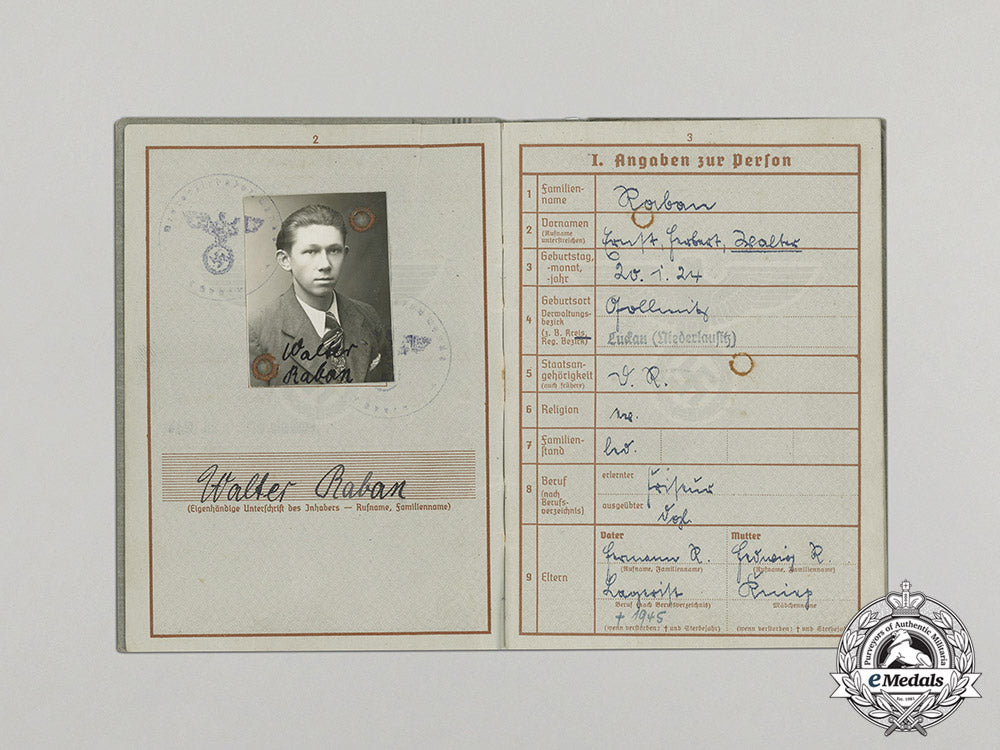 2
Walter
Raban
Walter Raban
(Eigenhändige Unterschrift des Inhabers — Rufname, Familienname)
3
I. Angaben zur Person
1 Familien-
name
Raban
2 Vornamen
(Rufname
unterstreichen)
Ernst, Herbert, Walter
3 Geburtstag,
-monat,
-jahr
20. 1. 24
4 Geburtsort
Verwaltungs-
bezirk
(z. B. Kreis,
Reg. Bezirk)
Gollmitz
Luckau (Niederlausitz)
5 Staatsan-
gehörigkeit
(auch frühere)
D. R.
6 Religion
ev.
7 Familien-
stand
led.
8 Beruf
(nach
Berufs-
verzeichnis)
erlernter
Friseur
ausgeübter
dgl.
9 Eltern
Vater
Mutter
Hermann R.
Hedwig R.
(Rufname, Familienname)
(Rufname, Familienname)
Lagerist
Beruf (nach Berufsverzeichnis)
Mädchenname
† 1945
(wenn verstorben: † und Sterbejahr)
(wenn verstorben: † und Sterbejahr)
Purveyors of Authentic Militaria
eMedals
Est. 1983